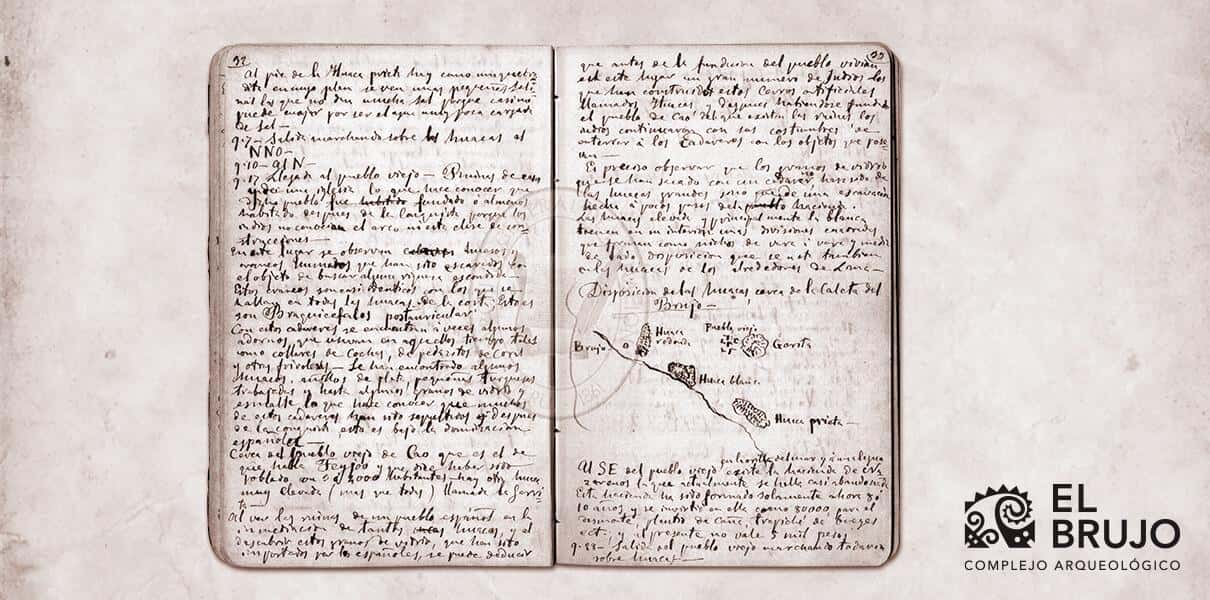 32
Al pie de la Huaca prieta hay como una quebra-
dita en cuyo plan se ven unas pequeñas Sali-
nas las que no dan mucha sal porque casi no
puede cuajar por ser el agua muy poco cargada
de Sal —
9.7 — Salida marchando sobre las huacas al
NNO —
9.10 — al N —
9.17 Llegada al pueblo viejo — Ruinas de casas
y de una iglesia lo que hace conocer que
dicho pueblo fue habitado fundado ó al menos
habitado despues de la Conquista porque los
indios no conocian el arco ni esta clase de cons-
trucciones —
En este lugar se observan huesos y
craneos humanos que han sido escavados con
el objeto de buscar alguna riqueza escondida
Estos craneos son casi identicos con los que se
hallan en todas las huacas de la costa; Estos
son Braquicefalos
Con estos cadaveres se encuentran á veces algunos
adornos, que usaban en aquellos tiempos tales
como collares de Conchas, de pedacitos de Coral
y otras frivoleras — Se han encontrado algunos
huacos, anillos de plata, pequeñas turquesas
trabajadas y hasta algunos granos de vidrio y
esmalte lo que hace conocer que muchos
de estos cadaveres han sido sepultados despues
de la conquista esto es bajo la dominacion
española —
Cerca del pueblo viejo de Cao que es el de
que habla Feyjoo y que dice haber sido
poblado con 3000 habitantes hay otra huaca
muy elevada (mas que todas) llamada la Garri-
ta —
Al ver las ruinas de un pueblo español en la
inmediacion de tantas huacas, y al
descubrir estos granos de vidrio, que han sido
importados por los españoles, se puede deducir
33
que antes de la fundacion del pueblo vivian
en este lugar un gran numero de Indios los
que han construido estos Cerros artificiales
llamados Huacas y despues habiendose fundado
el pueblo de Cao del que existen las ruinas los
indios continuaron con sus costumbres de
enterrar á los Cadaveres con los objetos que pose-
ian —
Es preciso observar que los granos de vidrio
que se han sacado con un cadaver no han sido de
las huacas grandes sino que de una escavacion
hecha á pocos pasos del pueblo hacienda.
Las huacas elevadas y principalmente la blanca
tienen en su interior unas divisiones encaradas
que forman como nichos de vara y media
de lado disposicion que se nota tambien
en las huacas de los alrededores de Lima —
Disposicion de las huacas cerca de la Caleta del
Brujo —
Brujo
Huaca
redonda
Pueblo viejo
Garita
Huaca blanca
Huaca prieta —
Al SE del pueblo viejo existe la hacienda de
la que actualmente se halla casi abandonada
Esta hacienda ha sido formada solamente ahora 8 ó
10 años, y se invirtió en ella como 80000 para el
desmonte, plantio de caña, trapiche de fuegos
ect. y al presente no vale 5 mil pesos
9.33 — Salida del pueblo viejo marchando todavia
sobre huacas —
EL
BRUJO
COMPLEJO ARQUEOLÓGICO